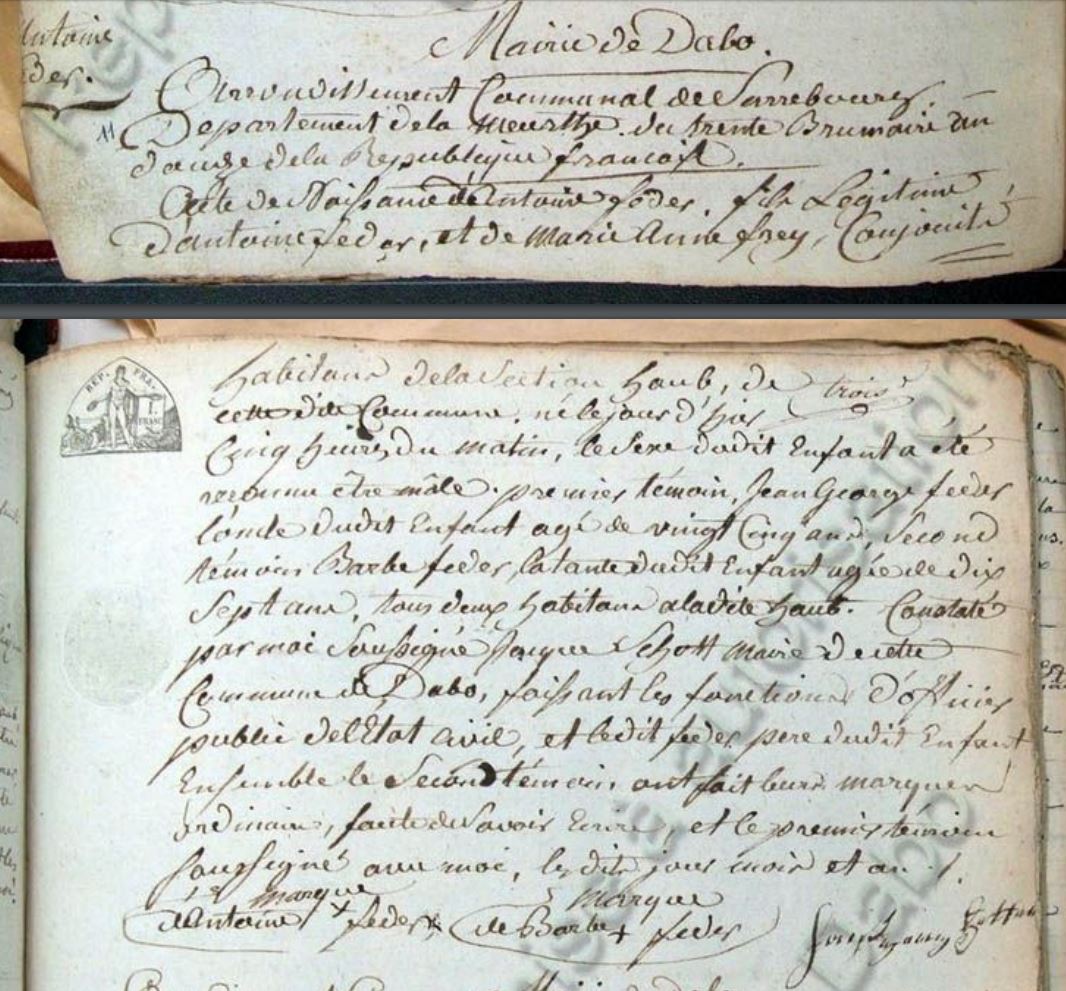 Antoine
feder.
Mairie de Dabo.
Arrondissement Communal de Sarrebourg.
11 Departement dela Meurthe. du trente Brumaire an
douze dela Republique francaise.
Acte de Naissance de Antoine foder, fils Legitime
D'antoine feder, et de Marie Anne frey, Conjoints
habitans dela Section haub, de trois
cette dite Commune, né le jour d'hier
Cinq heures du matin, le Sexe dudit Enfant a été
reconnu être mâle. premier témoin, Jean George feder
l'oncle dudit Enfant agé de vingt Cinq ans, Second
témoin Barbe feder, la tante dudit Enfant agée de dix
Sept ans, tous deux habitans aladite haub. Constaté
par moi Soussigné Jacque Schott Maire de cette
Commune de Dabo, faissant les fonctions D'officier
public del'Etat civil, et ledit feder pere dudit Enfant
Ensemble le Second témoin ont fait leurs marques
ordinaires, faute de Savoir Ecrire, et le premier témoin
Soussigné avec moi, les dits jour mois et an.
marque marque
de Antoine x feder de Barbe + feder
REP. FRA.
1 FRANC